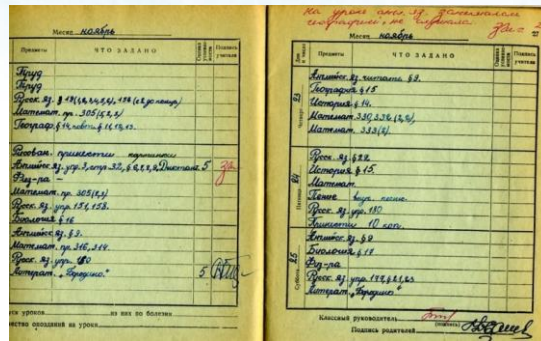 Месяц ноябрь
Предметы ЧТО ЗАДАНО Оценка успеваемости Подпись учителя
Труд
Труд
Русск. яз.
Математ. пр. 305
Географ. § 14, повт. § 11, 12, 13.
Рисован. принести
Английск. яз. упр. 3, стр. 32, Диктант 5
Физ-ра –
Математ. пр. 305
Русск. яз. упр. 151, 153.
Биология § 16
Английск. яз. § 3.
Математ. пр. 316, 314.
Русск. яз. упр. 180
Литерат. „Бородино“ 5
уроков из них по болезни
опозданий на уроки
На уроке англ. яз. занималась
географией, не слушала.
Месяц ноябрь
Дни и числа Предметы ЧТО ЗАДАНО Оценка успеваемости Подпись учителя
Четверг 23
Английск. яз. читать § 9.
География § 15
История § 14.
Математ. 330, 336
Математ. 333
Пятница 24
Русск. яз. § 22.
История § 15.
Математ.
Пение
Русск. яз. упр. 180
Принести 10 коп.
Суббота 25
Английск. яз. § 9
Биология § 17
Физ-ра
Русск. яз. упр.
Литерат. „Бородино“
Классный руководитель
Подпись родителей